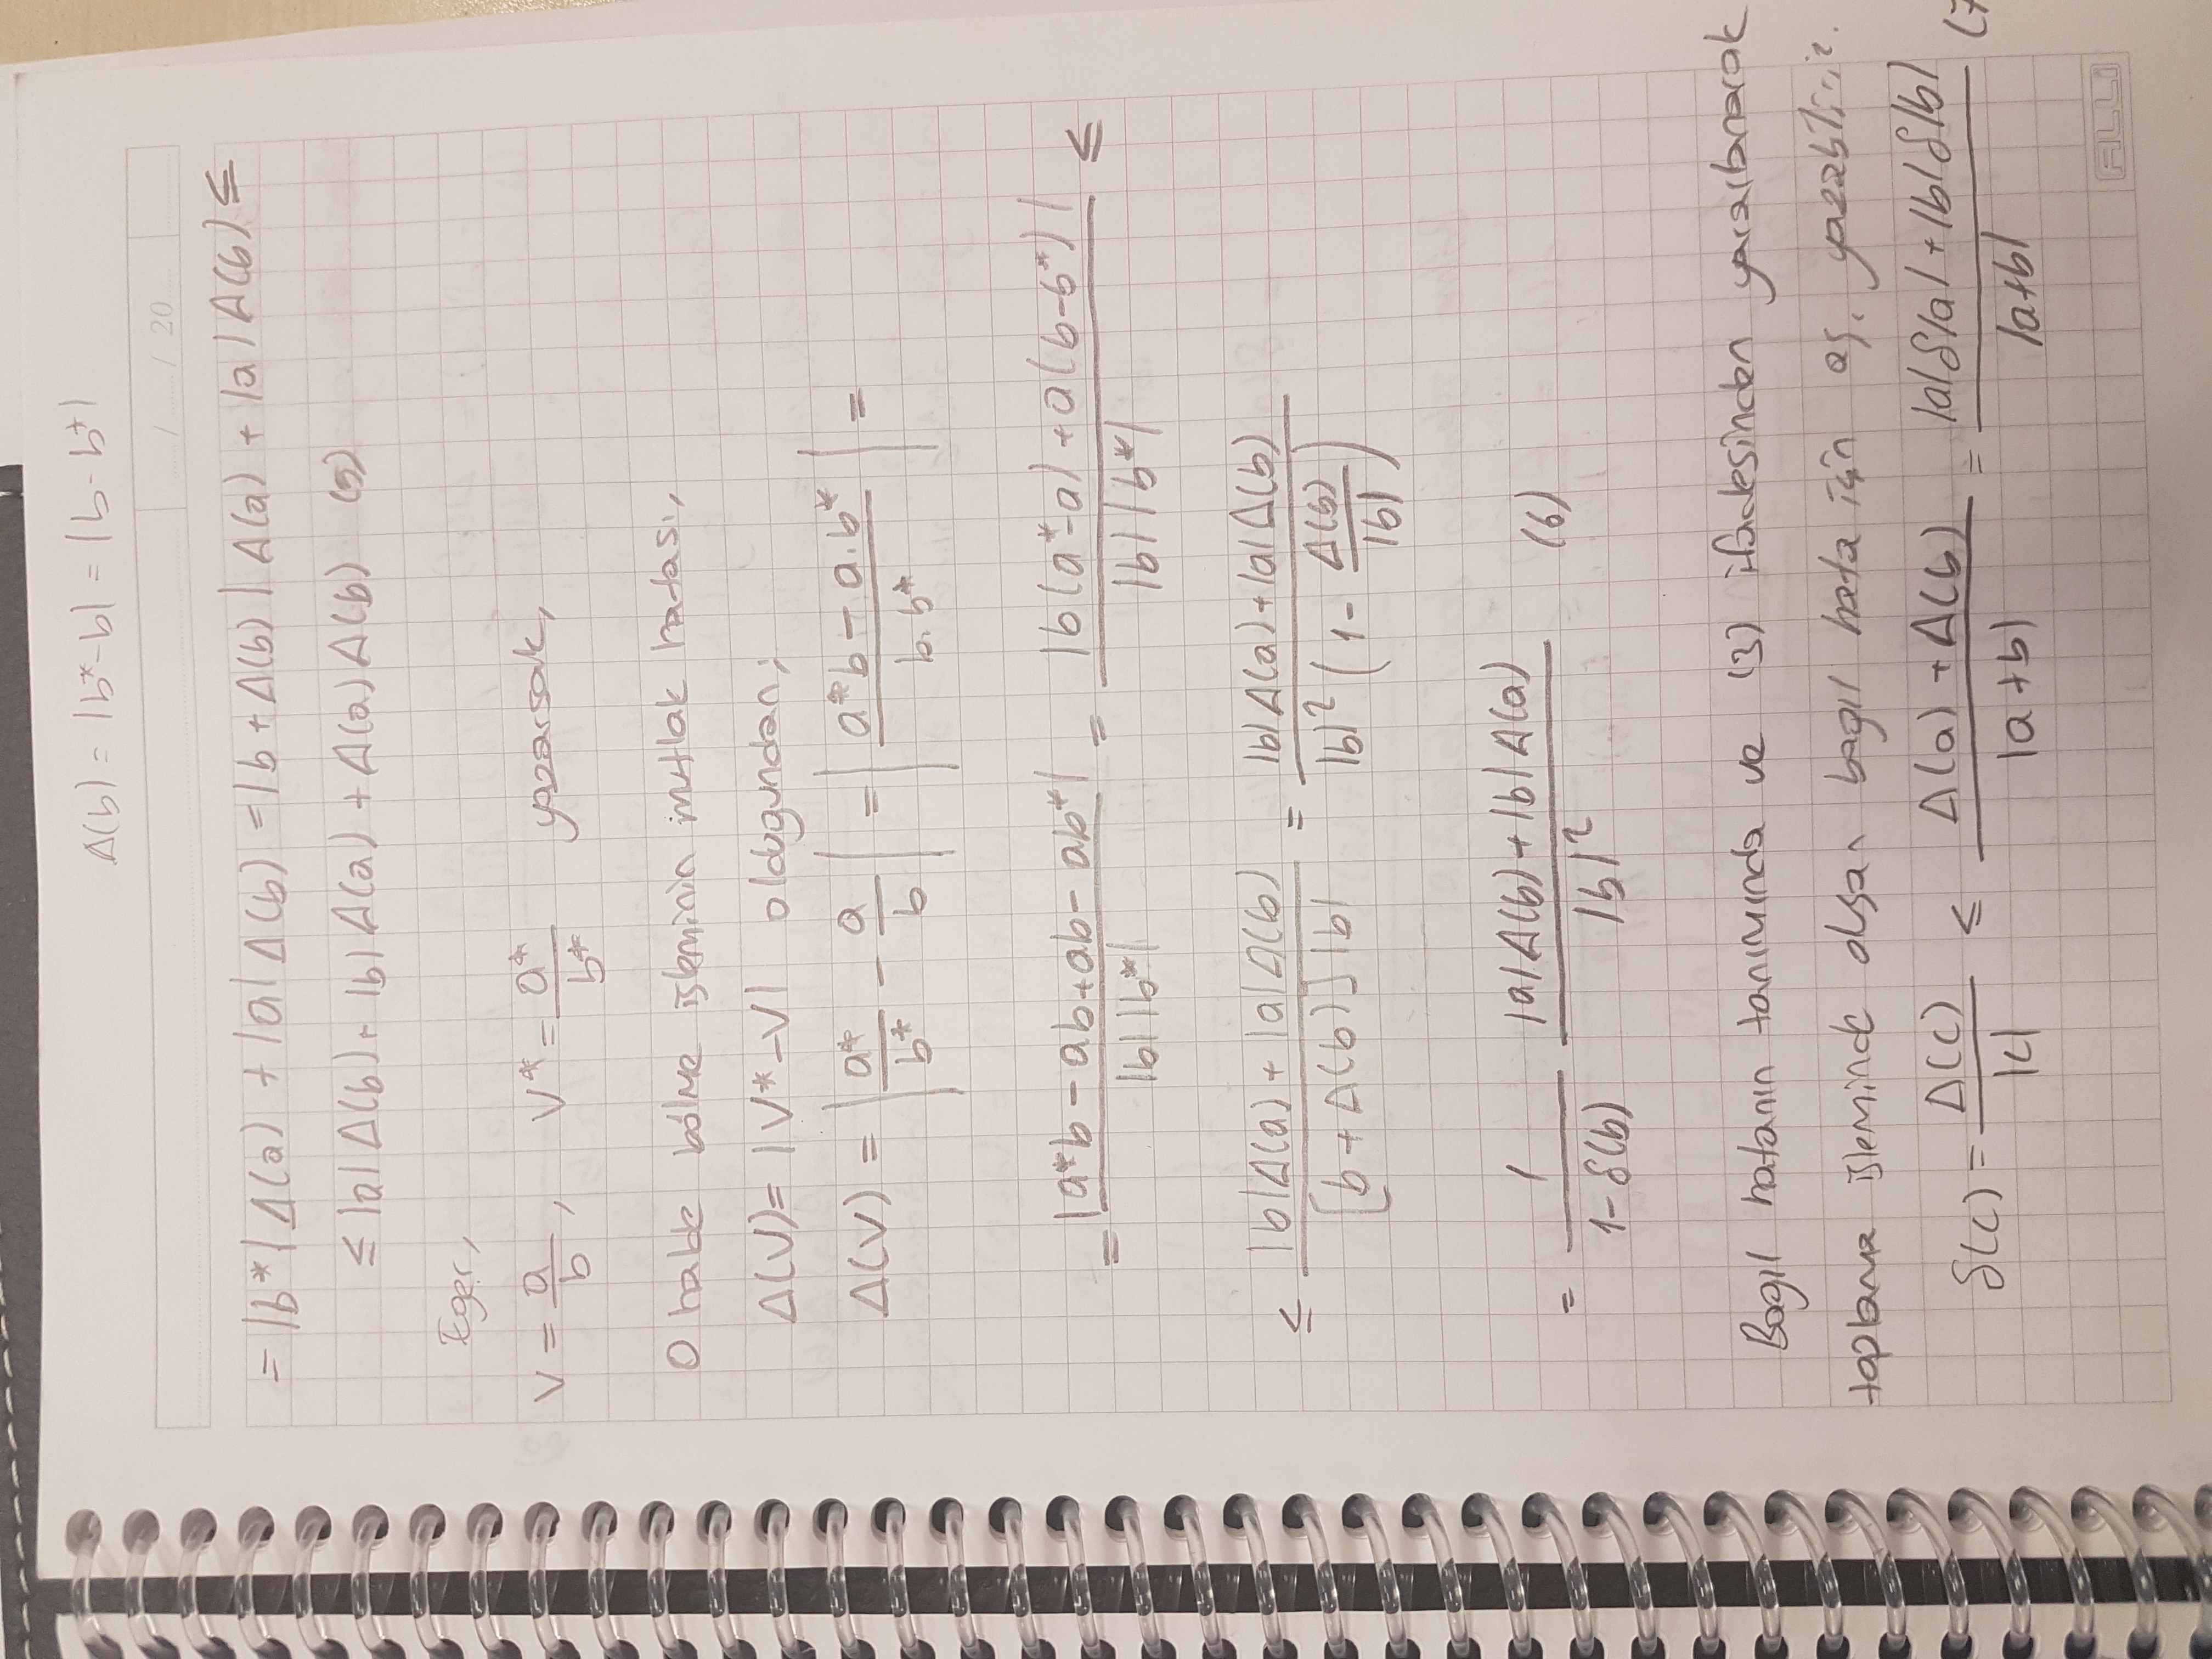 Δ(b) = |b*-b| = |b-b*|
/ / 20
= |b*|Δ(a) + |a|Δ(b) = |b+Δ(b)|Δ(a) + |a|Δ(b) ≤
≤ |a|Δ(b) + |b|Δ(a) + Δ(a)Δ(b) (5)
Eger,
V = a/b , V* = a*/b* yazarsak,
O halde bölme işleminin mutlak hatası,
Δ(V) = |V*-V| oldugundan;
Δ(V) = |a*/b* - a/b| = |(a*b - a.b*)/(b.b*)| =
= |a*b - ab + ab - ab*|/(|b||b*|) = |b(a*-a) + a(b-b*)|/(|b||b*|) ≤
≤ (|b|Δ(a) + |a|Δ(b))/([b+Δ(b)]|b|) = (|b|Δ(a) + |a|Δ(b))/(|b|²(1 - Δ(b)/|b|))
= 1/(1-δ(b)) (|a|Δ(b) + |b|Δ(a))/|b|² (6)
Bagıl hatanın tanımında ve (3) ifadesinden yararlanarak
toplama işleminde oluşan bagıl hata için aş. yazabiliriz.
δ(c) = Δ(c)/|c| ≤ (Δ(a) + Δ(b))/|a+b| = (|a|δ|a| + |b|δ|b|)/|a+b| (7
ALLi